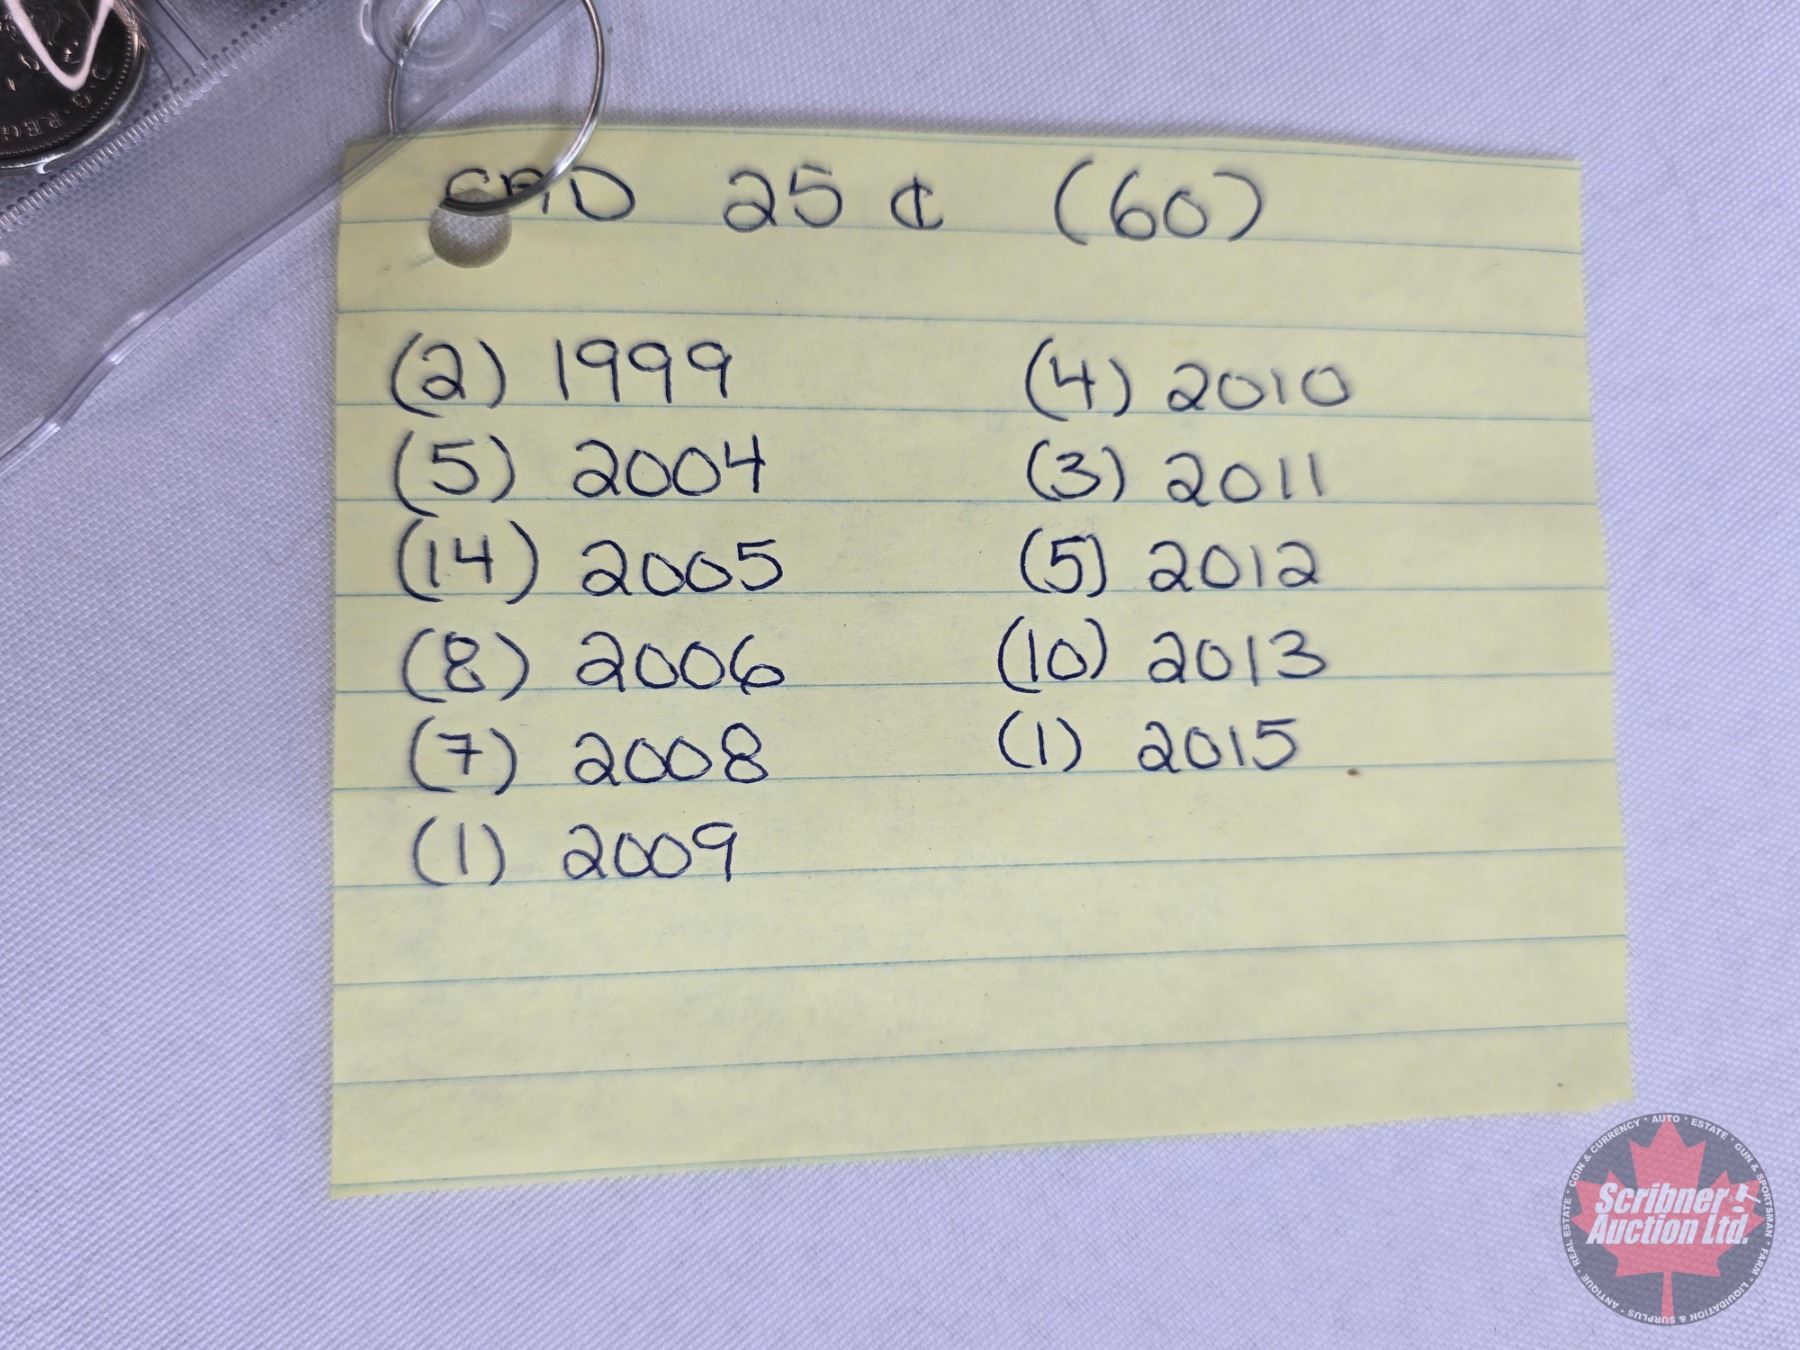 CAD 25 ¢ (60)
(2) 1999
(5) 2004
(14) 2005
(8) 2006
(7) 2008
(1) 2009
(4) 2010
(3) 2011
(5) 2012
(10) 2013
(1) 2015
Scribner
Auction Ltd.
COIN & CURRENCY • AUTO • ESTATE • GUN & SPORTSMAN • FARM • LIQUIDATION & SURPLUS • ANTIQUE • REAL ESTATE •